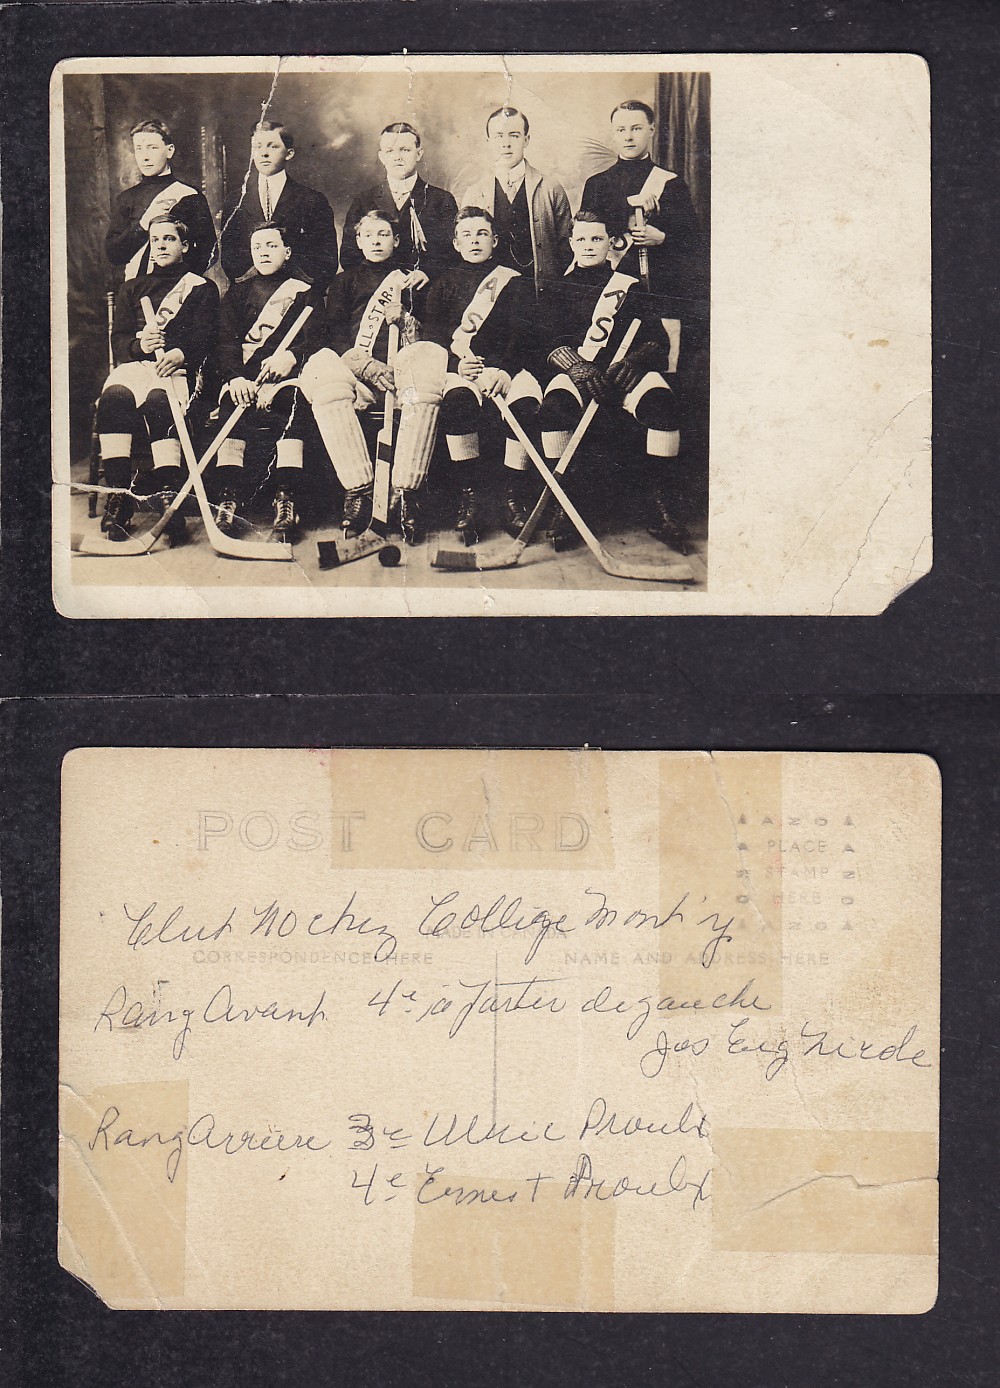 A
S
A
S
LL STAR
A
S
A
S
POST CARD
AZO
PLACE
STAMP
HERE
AZO
Club Hockey College Mont'y
MADE IN CANADA
CORRESPONDENCE HERE
NAME AND ADDRESS HERE
Rang Avant 4e à partir de gauche
Jos Eug
Rang Arriere 3e Ulric Proulx
4e Ernest Proulx